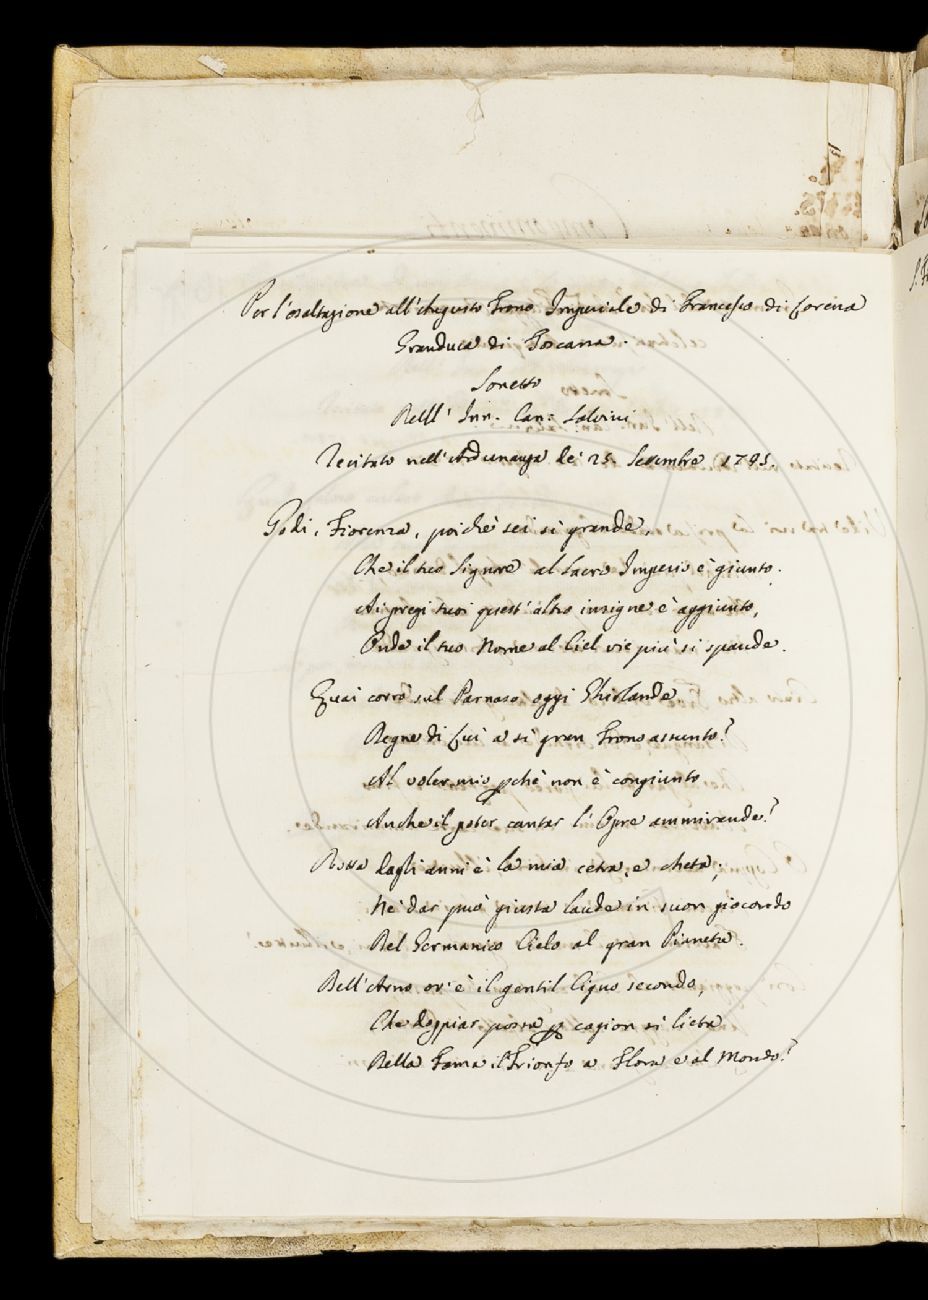 Per l'esaltazione all'Augusto Trono Imperiale di Francesco di Lorena
Granduca di Toscana.
Sonetto
Dell' Inn. Can: Salvini
Recitato nell'Adunanza de' 25. Settembre 1745.
Godi, Fiorenza, poichè sei sì grande,
Che il tuo Signore al Sacro Imperio è giunto.
Ai pregi tuoi quest'altro insigne è aggiunto,
Onde il tuo Nome al Ciel vie più si spande.
Quai corrò sul Parnaso oggi Ghirlande
Degne di Lui a sì gran Trono assunto?
Al voler mio pchè non è congiunto
Anche il poter cantar l'Opre ammirande?
Rossa dagli anni è la mia cetra, e cheta;
Nè dar può giusta laude in suon giocondo
Del Germanico Cielo al gran Pianeta.
Dell'Arno ov'è il gentil Cigno secondo,
Che doppiar possa p cagion sì lieta
Della Fama il Trionfo a Flora e al Mondo?